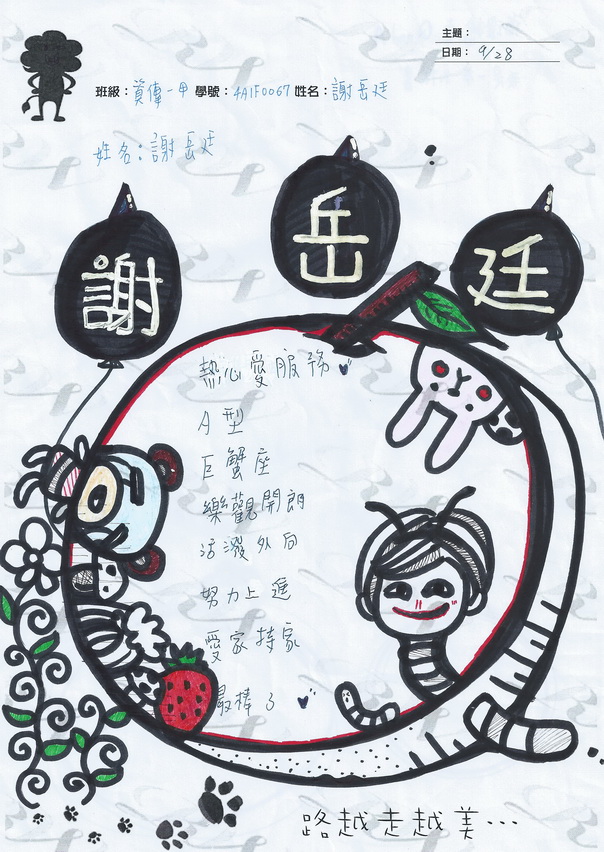 主題：
日期：9/28
班級：資傳一甲 學號：4A1F0067 姓名：謝岳廷
姓名：謝岳廷
謝 岳 廷
熱心愛服務
A型
巨蟹座
樂觀開朗
活潑外向
努力上進
愛家持家
最棒了
路越走越美…